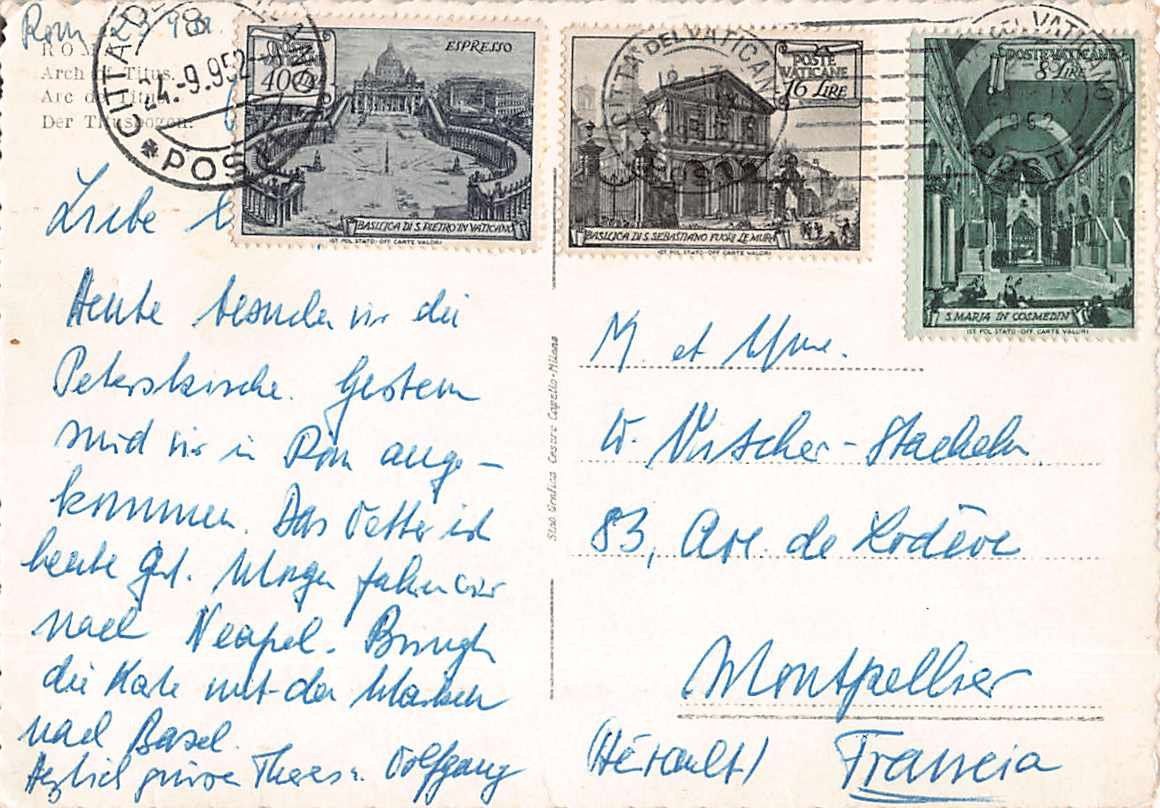 Rom
ROMA
Arch of Titus.
Arc de Titus.
Der Titusbogen.
CITTA DEL
4.-9.952
POS
40
ESPRESSO
BASILICA DI S. PIETRO IN VATICANO
IST. POL. STATO-OFF. CARTE VALORI
CITTA DEL VATICANO
POSTE
VATICANE
16 LIRE
BASILICA DI S. SEBASTIANO FUORI LE MURA
IST. POL. STATO-OFF. CARTE VALORI
POSTE VATICANE
8 LIRE
IX
1952
POSTE
S. MARIA IN COSMEDIN
IST. POL. STATO-OFF. CARTE VALORI
Liebe
Heute besuchen wir die
Peterskirche. Gestern
sind wir in Rom ange-
kommen. Das Wetter ist
heute gut. Morgen fahren wir
nach Neapel. Bringt
die Karte mit den Marken
nach Basel.
Herzlich grüssen Theres u. Wolfgang
Stab Grafico Cesare Capello-Milano
M. et Mme.
W. Vischer-Staehelin
83, Ave. de Lodève
Montpellier
(Hérault) Francia